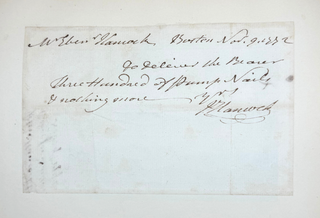 Mr Eben Hancock Boston Nov. 9. 1772
To deliver the Bearer
Three Hundred of Pump Nails
& nothing more Yrs
Hancock